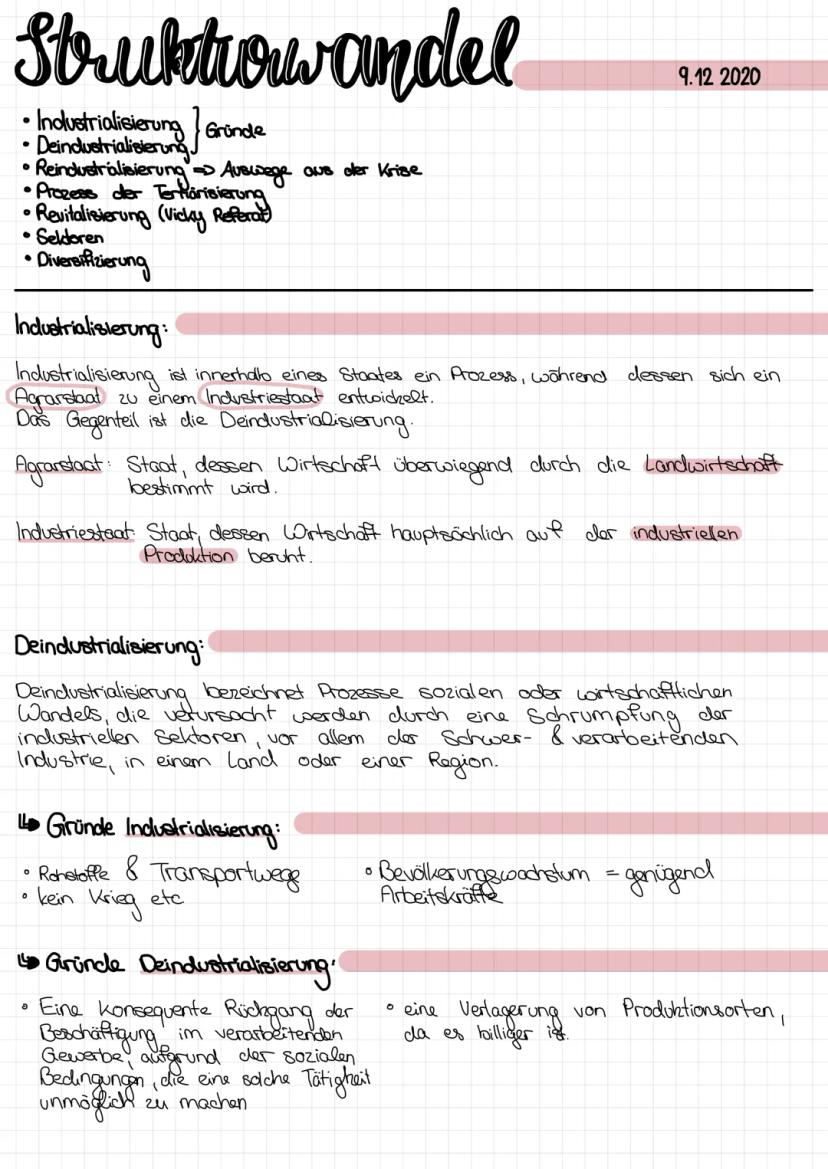 Strukturwandel
9.12 2020
• Industrialisierung } Gründe
• Deindustrialisierung
• Reindustrialisierung => Auswege aus der Krise
• Prozess der Tertiärisierung
• Revitalisierung (Vicky Referat)
• Sektoren
• Diversifizierung
Industrialisierung:
Industrialisierung ist innerhalb eines Staates ein Prozess, während dessen sich ein
Agrarstaat zu einem Industriestaat entwickelt.
Das Gegenteil ist die Deindustrialisierung.
Agrarstaat: Staat, dessen Wirtschaft überwiegend durch die Landwirtschaft
bestimmt wird.
Industriestaat: Staat, dessen Wirtschaft hauptsächlich auf der industriellen
Produktion beruht.
Deindustrialisierung:
Deindustrialisierung bezeichnet Prozesse sozialen oder wirtschaftlichen
Wandels, die verursacht werden durch eine Schrumpfung der
industriellen Sektoren, vor allem der Schwer- & verarbeitenden
Industrie, in einem Land oder einer Region.
↳ Gründe Industrialisierung:
• Rohstoffe & Transportwege
• kein Krieg etc
• Bevölkerungswachstum = genügend
Arbeitskräfte
↳ Gründe Deindustrialisierung:
• Eine konsequente Rückgang der
Beschäftigung im verarbeitenden
Gewerbe, aufgrund der sozialen
Bedingungen, die eine solche Tätigkeit
unmöglich zu machen
• eine Verlagerung von Produktionsorten,
da es billiger ist.